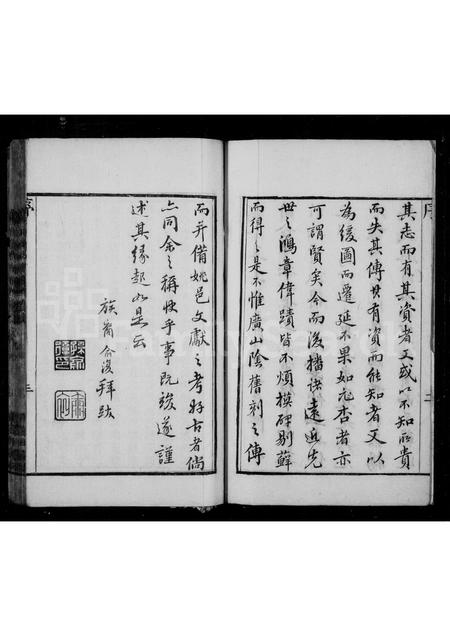 序
其志而有其資者又或以不知所貴
而失其傳世有資而能知者又以
為緩圖而遷延不果如元杏者亦
可謂賢矣今而後播諸遠近先
世之鴻章偉蹟皆不煩模碑剔蘚
而得之是不惟廣山陰舊刻之傳
二
而并備姚邑文獻之考好古者倘
亦同余之稱快乎事既竣遂謹
述其緣起如是云
族裔
俊拜跋
序
三
FamilySearch